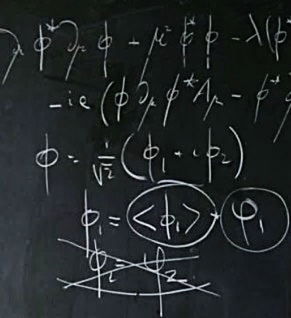 ∂μ ϕ* ∂μ ϕ - μ² ϕ* ϕ - λ(ϕ*
- ie (ϕ ∂μ ϕ* Aμ - ϕ*
ϕ = 1/√2 (ϕ₁ + iϕ₂)
ϕ₁ = <ϕ₁> + φ₁
ϕ₂ = φ₂